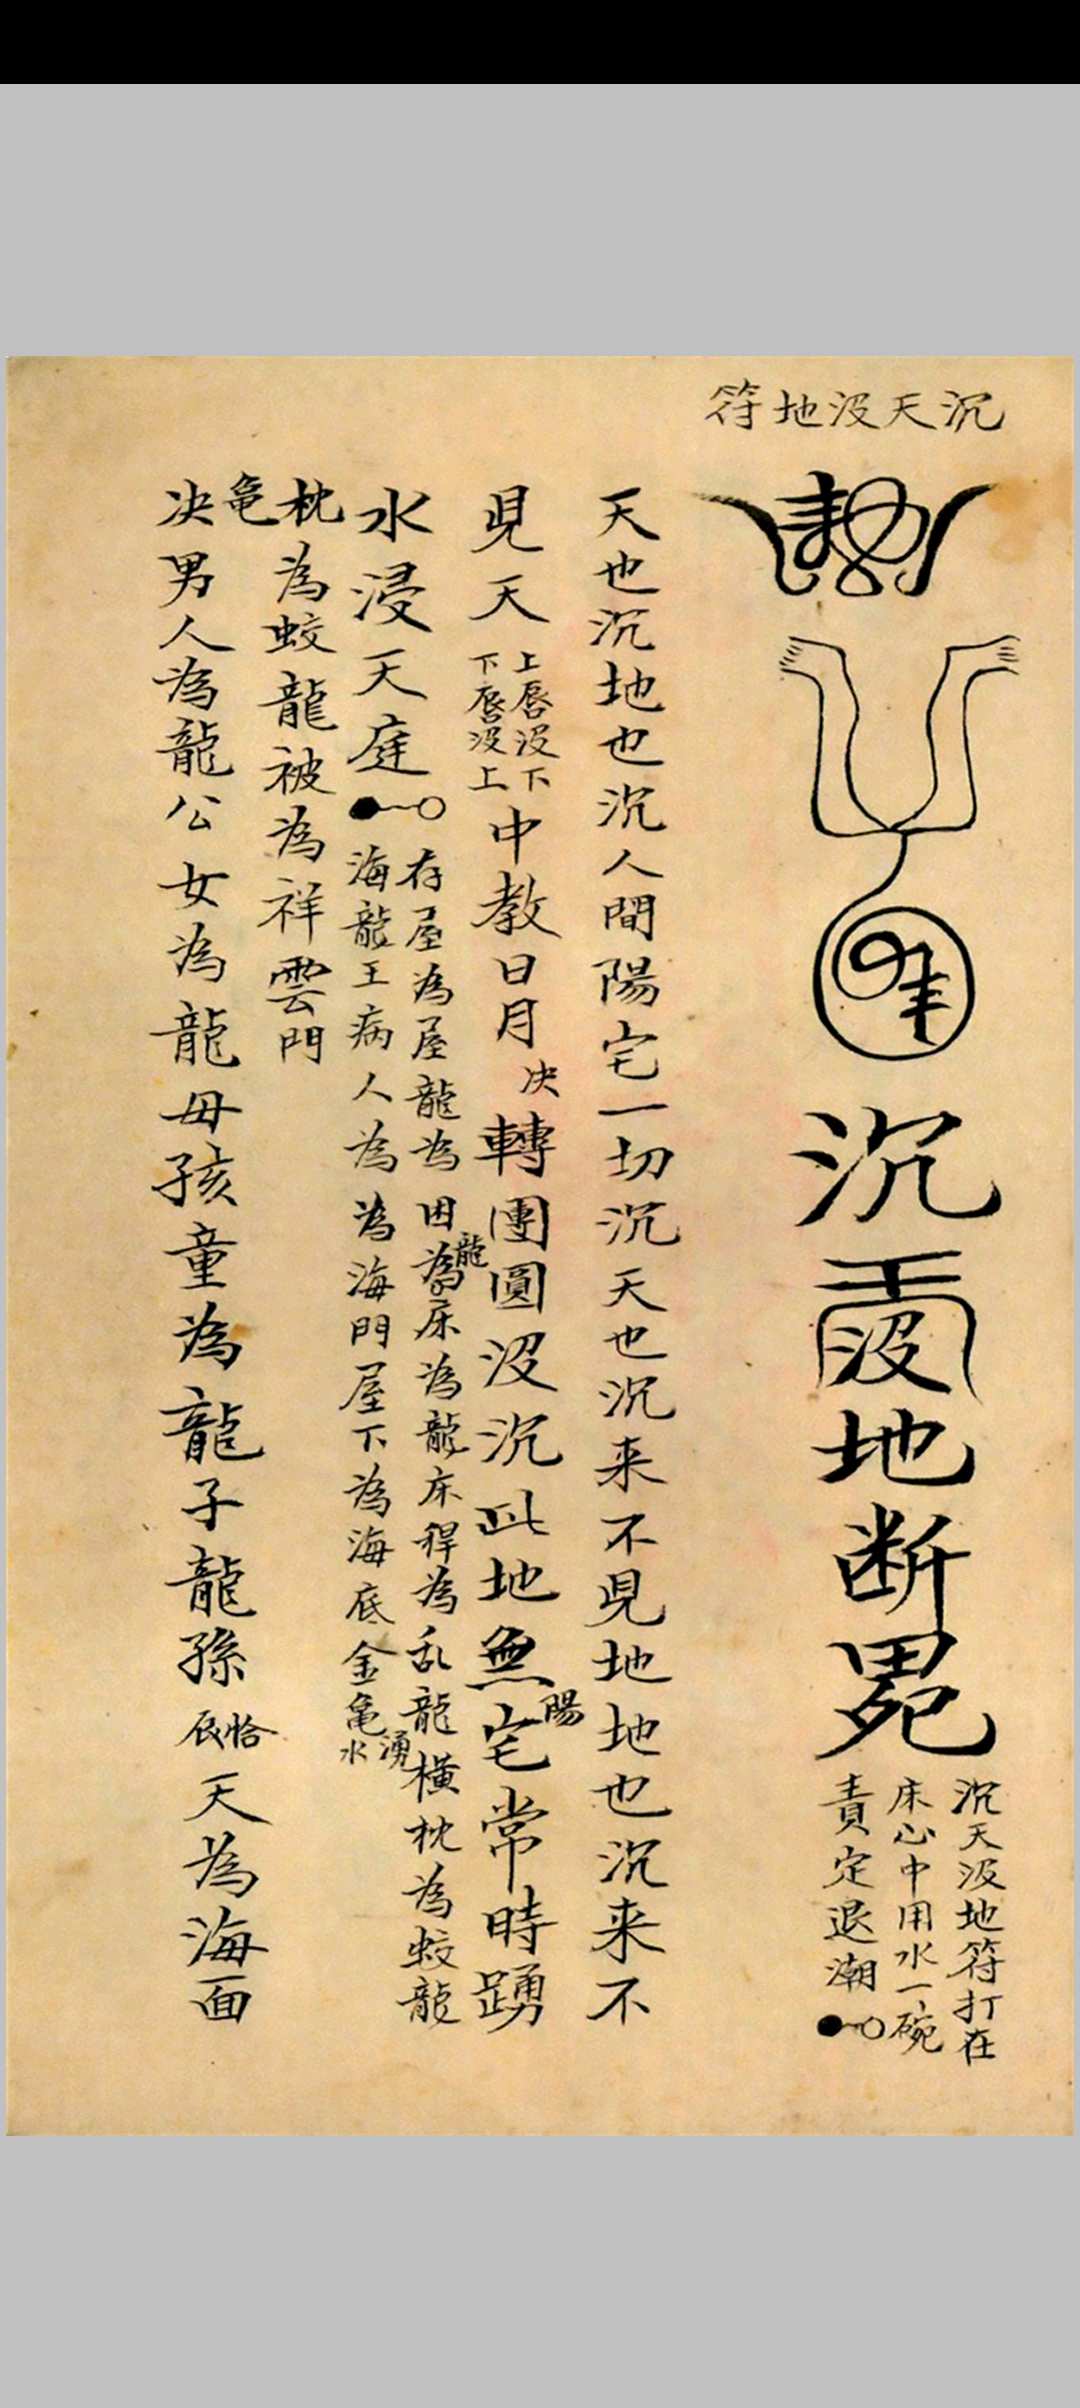 沉天沒地符
沉
沒
地
断
沉天沒地符打在
床心中用水一碗
責定退潮
天也沉地也沉人間陽宅一切沉天也沉来不見地地也沉来不
見天
上唇沒下
下唇沒上
中教日月
决
轉團圓沒沉此地無宅常時踴
陽
水浸天庭
存屋為屋龍為困為床為龍床稈為乱龍橫枕為蛟龍
龍
海龍王病人為為海門屋下為海底金亀
湧
水
枕為蛟龍被為祥雲門
亀
决男人為龍公女為龍母孩童為龍子龍孫
恰
辰
天為海面